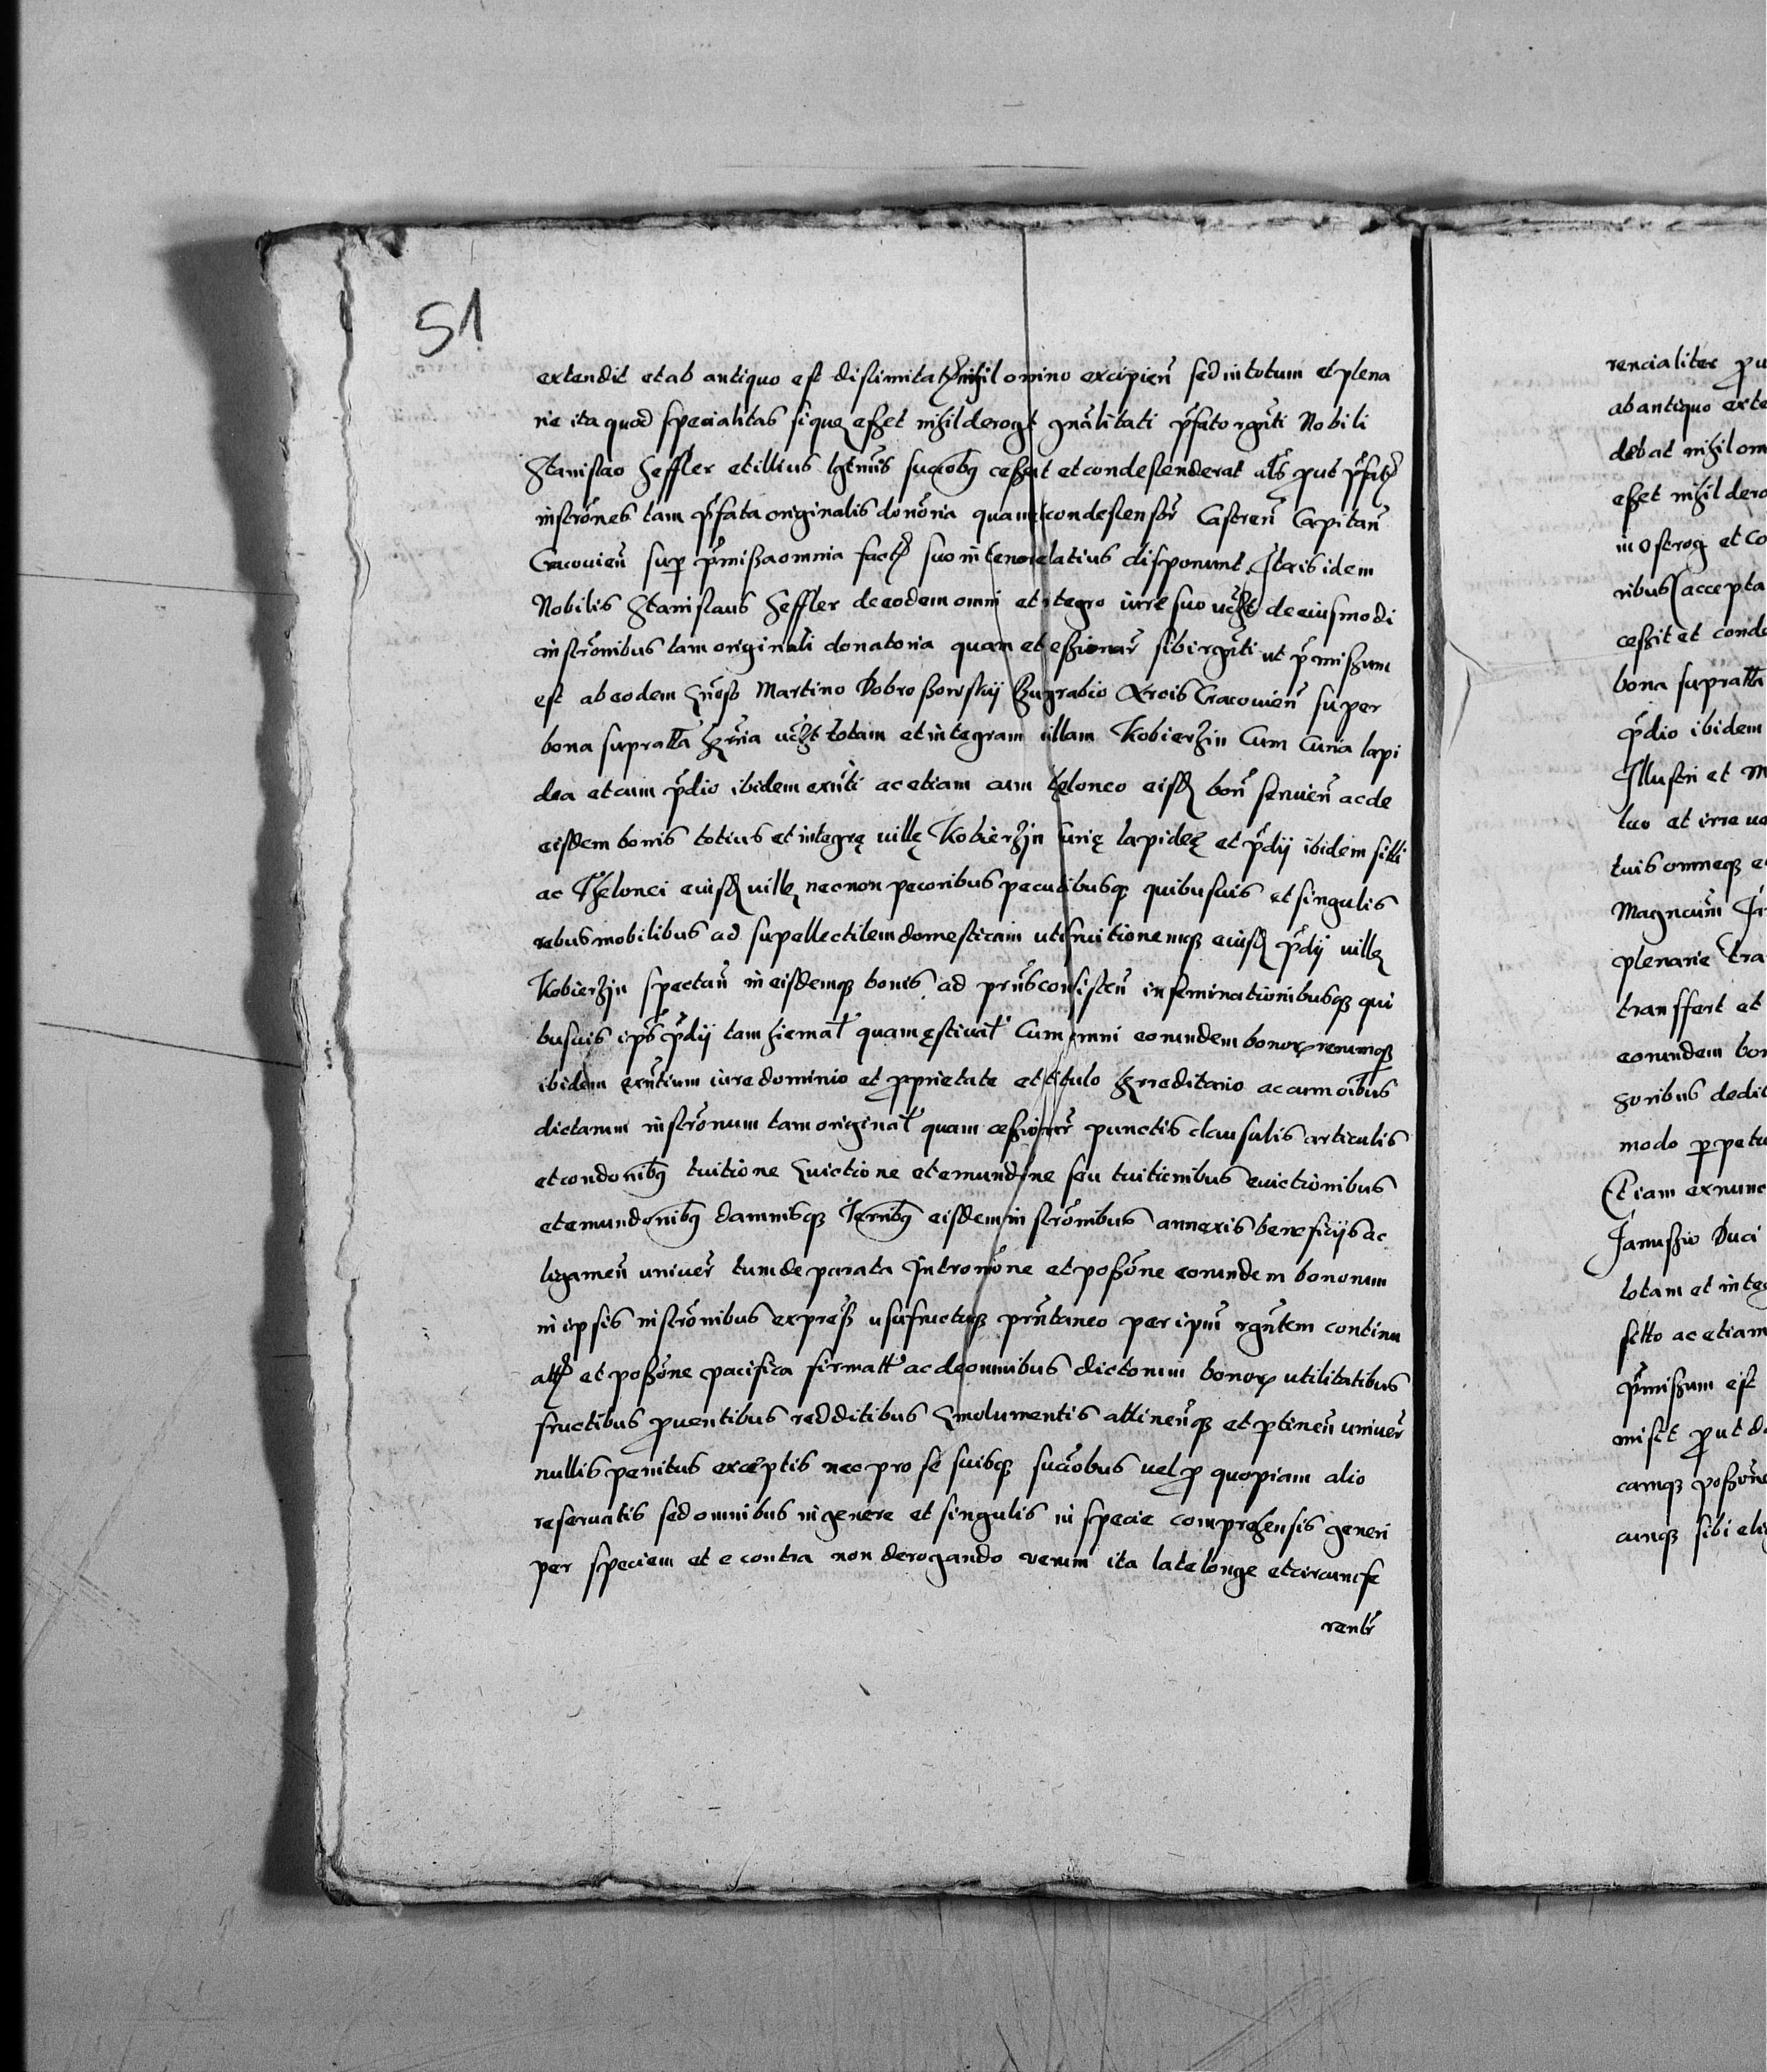 51
extendit et ab antiquo est distimitat nihil omino excipien̄ sed in totum et plena
rie ita quod specialitas si quę eßet nihil derogt gnālitati p̄fato rgn̄ti Nobili
Stanislao Heffler et illius lgtmis succōbȝ ceßit et condescenderat al̄s put p̄fat
inscrōnes tam p̄fata originalis donōria quam condescensōr Castren̄ Capitan̄
Cracouien̄ sup p̄mißa omnia fact suo in tenore latius disponunt. Itaris idem
Nobilis Stanislaus Heffler de eodem omni et integro iurē suo de eiusmodi
inscrōnibus tam originali donatoria quam et ceßionar̄ sibi rgn̄ti ut p̄mißum
est ab eodem Martino Dobroßowskij Burgrabio Arcis Cracouien̄ super
bona supratta totam et integram uillam Kobierzin Cum Curia lapi
dea et cum p̄dio ibidem exn̄ti ac etiam cum theloneo eisd bon̄ seruien̄ ac de
eisdem bonis totius et integrę uillę Kobierzin Curię lapideę et p̄dij ibidem sitti
ac Thelonei eiusd uillę necnon pecoribus pecudibusqȝ quibusuis et singulis
rebus mobilibus ad supellectilem domesticam utifruitionemqȝ eiusd p̄dij uillę
Kobierzin spectan̄ in eisdemqȝ bonis ad prn̄s consisten̄ inseminationibusqȝ qui
busuis ip̄s p̄dij tam hiemal̄ quam ęstiual̄ Cum omni eorundem bonorꝝ rerumqȝ
ibidem exn̄tium iure dominio et pprietate et titulo hereditario ac cum oībus
dictarum inscrōnum tam original̄ quam ceßionar̄ punctis clausulis articulis
et condōnibȝ tuitione Euictione et emundōne seu tuitionibus euictionibus
et emundōnibȝ damnisqȝ ternibȝ eisdem inscrōnibus annexis beneficijs ac
ligamen̄ uniuer̄ tum de parata Intromōne et poßōne eorundem bonorum
in ipsis inscrōnibus expreß usufructuqȝ prn̄taneo per ipm̄ rgn̄tem continu
att et poßōne pacifica firmatt ac de omnibus dictorum bonorꝝ utilitatibus
fructibus puentibus redditibus Emolumentis attinen̄qȝ et ptinen̄ uniuer̄
nullis penitus exceptis nec pro se suisqȝ succōbus uel p quopiam alio
reseruatis sed omnibus in genere et singulis in specie comprehensis generi
per speciem et e contra non derogando verum ita late longe et circumfe
rentr̄
rencialiter pu
ab antiquo exte
debat nihil om
eßet nihil dero
in Ostrog et Co
ribus accepta
ceßit et conde
bona supratta
p̄dio ibidem
Illustri et M
tuo et irre uo
tuis omneqȝ e
plenarie tra
transffert et
eorundem bon
modo ppetu
Etiam ex nunc
Janußio Duci
totam et integ
sitto ac etiam
p̄mißum est
misit put d
camqȝ poßōne
cunqȝ sibi eli